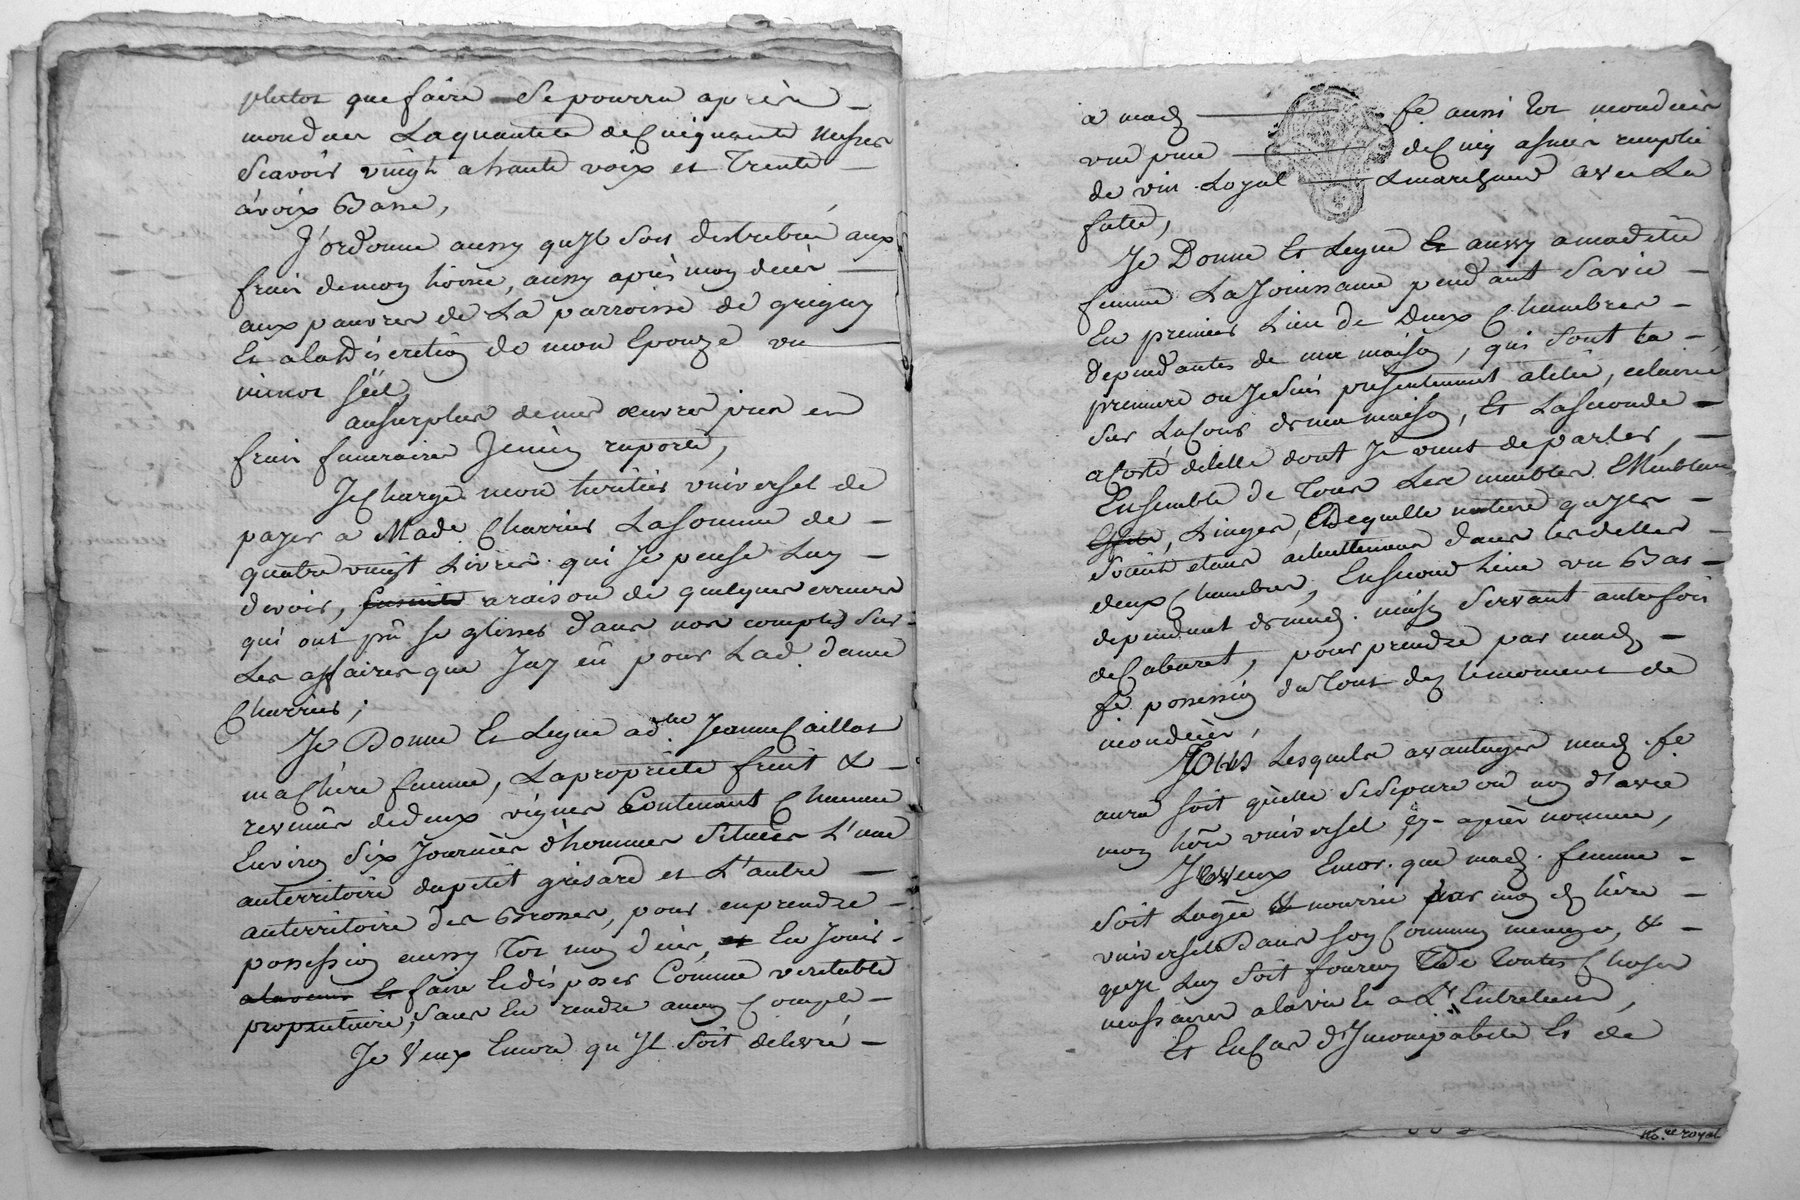 plutot que faire Se pourra après
mon deces La quantité de Cinquante Messes
Scavoir vingt a haute voix et Trente
a voix Basse,
J'ordonne aussy qu'Jl Soit distribué aux
frais de mon hoirie, aussy après mon décès
aux pauvres de La parroisse de grigny
Et a la discretion de mon Epouze un
minot sel,
au surplus de mes œuvres pies et
frais funeraires Je m'en raporte,
Je Charge mon héritier universel de
payer a Made Charrier La Somme de
quatre vingt Livres qui Je pense Luy
devoir, a raison de quelques erreurs
qui ont pû se glisser dans nos comptes Sur
Les affaires que J'ay eü pour Lad. dame
Charrier,
Je Donne Et Legue a dlle Jeanne Caillot
ma Chère femme, La proprieté fruit &
revenûs de deux vignes Contenant Chacune
Environ Six Journées d'hommes Situées L'une
au territoire du petit grisard et L'autre
au territoire des Brosses, pour en prendre
possession aussy Tot mon décès, En Jouir
Et faire Et disposer Comme veritable
proprietaire, Sans En rendre aucun Compte
Je Veux Encore qu'Jl Soit délivré
a mad fe aussi Tot mon décès
une pièce de Cinq asnées remplie
de vin Loyal & marchand avec La
futte,
Je Donne Et Legue Et aussy a mad.
femme La Jouissance pendant Sa vie
En premier Lieu de Deux Chambres
dependantes de ma maison, qui Sont La
premiere ou Je Suis présentement alité, eclairée
Sur La Cour de ma maison, Et La Seconde
a Costé de Celle dont Je vient de parler,
Ensemble de Tous Les meubles
Linges, De quelle nature qu'Jls
Soient etant actuellement dans les dittes
deux Chambres, En Second Lieu un Bas
dependant de mad. maison Servant autrefois
de Cabaret, pour prendre par mad
fe possession du Tout dez le moment de
mon décès,
Tous Lesquels avantages mad. fe
aura soit qu'elle Se Sépare ou non d'avec
mon héri universel Cy-après nommé,
Je Veux Encor. que mad. femme
Soit Logée & nourrie par mon d héri
universel Dans Son Commun menage, &
qu'Jl Luy Soit fourny De Toutes Choses
necessaires a la vie Et a L'Entretient,
Et En Cas d'Jncompatibilité Et de
No.re royal